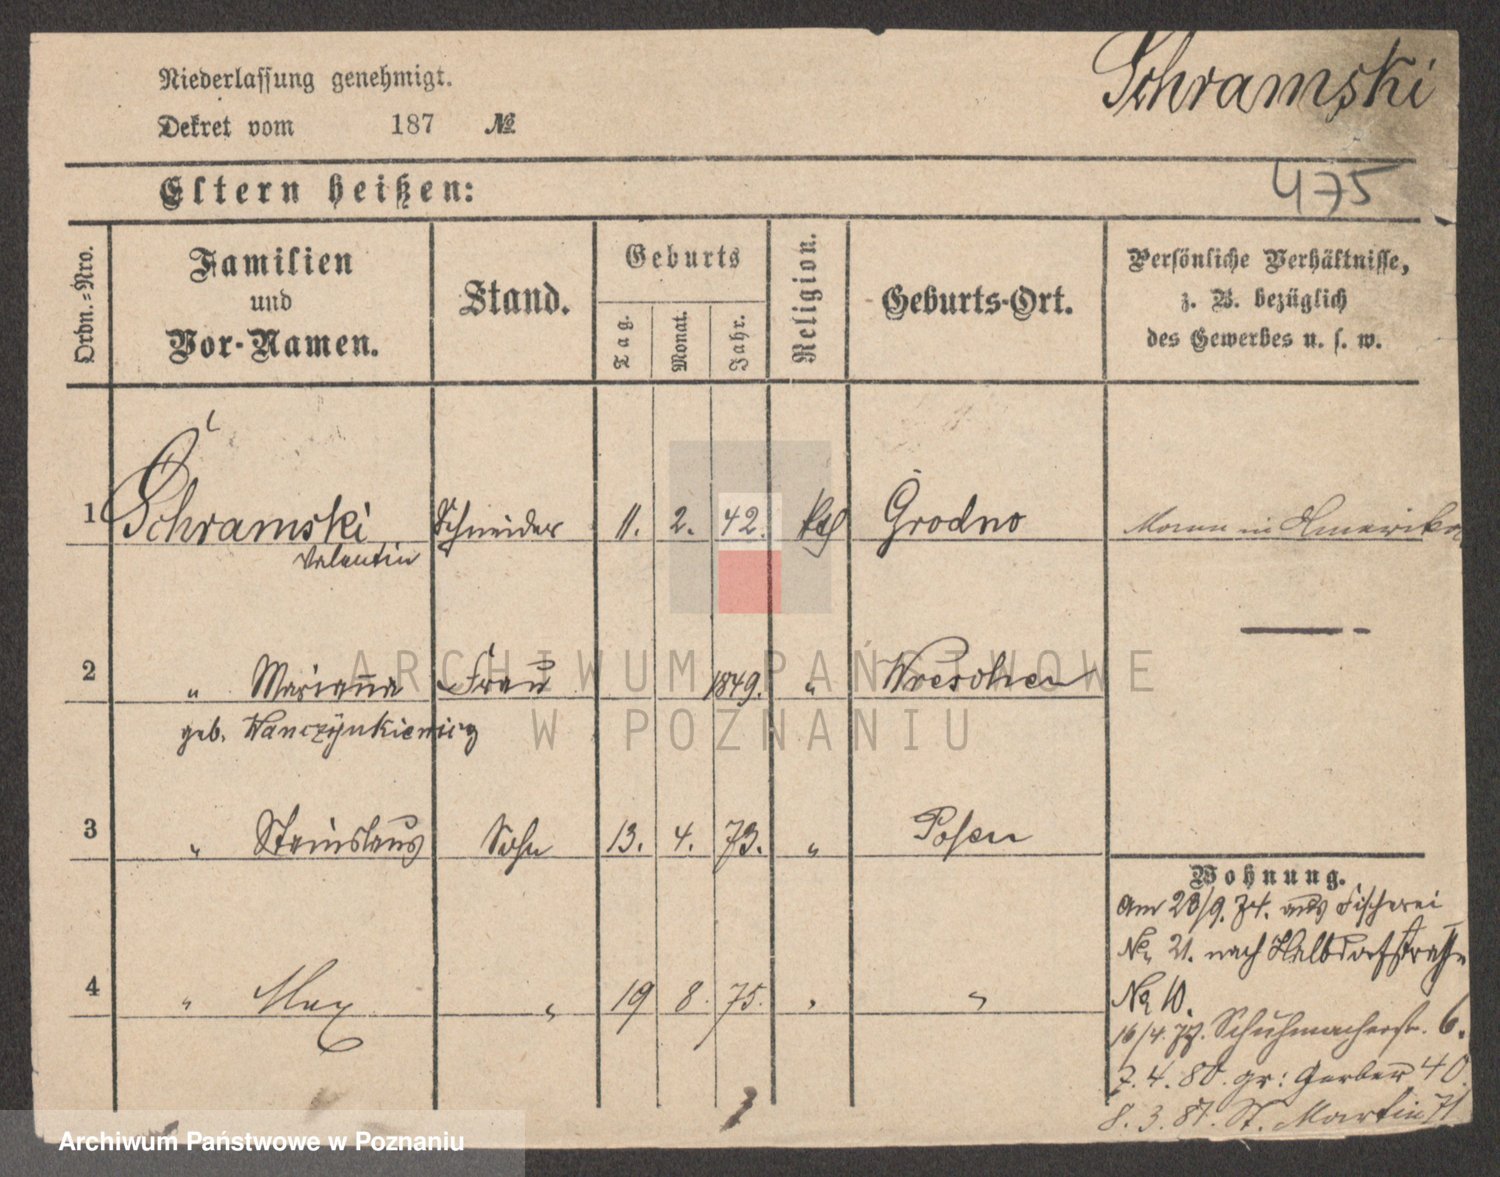 Niederlassung genehmigt.
Schramski
Dekret vom 187 №
475
Eltern heißen:
Ordn.-Nro.
Familien
und
Vor-Namen.
Stand.
Geburts
Tag.
Monat.
Jahr.
Religion.
Geburts-Ort.
Persönliche Verhältnisse,
z. B. bezüglich
des Gewerbes u. s. w.
1 Schramski Schneider 11. 2. 42. kath Grodno Mann in Amerika
Valentin
2 " Marianna Frau 1849. " Wreschen
geb. Wanczynkiewicz
3 " Stanislaus Sohn 13. 4. 73. " Posen
4 " Max " 19 8. 75. " "
Wohnung.
Am 28/9. 74. aus Fischerei
No 21. nach Halbdorfstraße
No 10.
16/4. Schuhmacherstr. 6.
7. 4. 80. gr: Gerber 40
8. 3. 81. St. Martin 71
ARCHIWUM PAŃSTWOWE
W POZNANIU
Archiwum Państwowe w Poznaniu